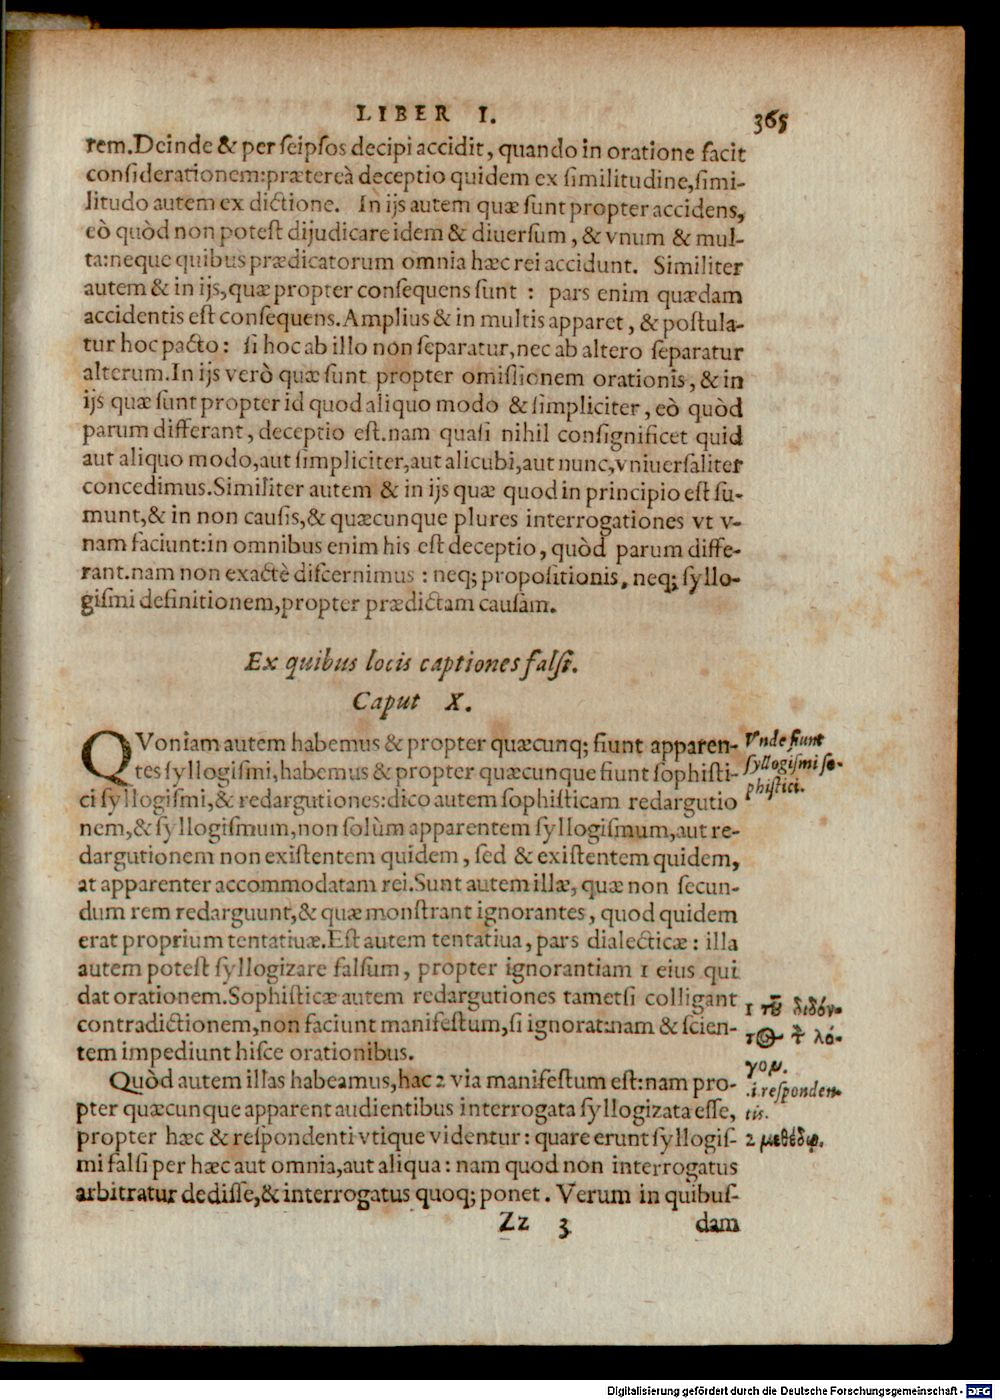 LIBER I. 365
rem. Deinde & per seipsos decipi accidit, quando in oratione facit
considerationem: prætereà deceptio quidem ex similitudine, simi-
litudo autem ex dictione. In ijs autem quæ sunt propter accidens,
eò quòd non potest dijudicare idem & diuersum, & vnum & mul-
ta: neque quibus prædicatorum omnia hæc rei accidunt. Similiter
autem & in ijs, quæ propter consequens sunt : pars enim quædam
accidentis est consequens. Amplius & in multis apparet, & postula-
tur hoc pacto: si hoc ab illo non separatur, nec ab altero separatur
alterum. In ijs verò quæ sunt propter omissionem orationis, & in
ijs quæ sunt propter id quod aliquo modo & simpliciter, eò quòd
parum differant, deceptio est. nam quasi nihil consignificet quid
aut aliquo modo, aut simpliciter, aut alicubi, aut nunc, vniuersaliter
concedimus. Similiter autem & in ijs quæ quod in principio est su-
munt, & in non causis, & quæcunque plures interrogationes vt v-
nam faciunt: in omnibus enim his est deceptio, quòd parum diffe-
rant. nam non exactè discernimus : neq; propositionis, neq; syllo-
gismi definitionem, propter prædictam causam.
Ex quibus locis captiones falsi.
Caput X.
QVoniam autem habemus & propter quæcunq; fiunt apparen-
tes syllogismi, habemus & propter quæcunque fiunt sophisti-
ci syllogismi, & redargutiones: dico autem sophisticam redargutio
nem, & syllogismum, non solùm apparentem syllogismum, aut re-
dargutionem non existentem quidem, sed & existentem quidem,
at apparenter accommodatam rei. Sunt autem illæ, quæ non secun-
dum rem redarguunt, & quæ monstrant ignorantes, quod quidem
erat proprium tentatiuæ. Est autem tentatiua, pars dialecticæ: illa
autem potest syllogizare falsum, propter ignorantiam 1 eius qui
dat orationem. Sophisticæ autem redargutiones tametsi colligant
contradictionem, non faciunt manifestum, si ignorat: nam & scien-
tem impediunt hisce orationibus.
Quòd autem illas habeamus, hac 2 via manifestum est: nam pro-
pter quæcunque apparent audientibus interrogata syllogizata esse,
propter hæc & respondenti vtique videntur: quare erunt syllogis-
mi falsi per hæc aut omnia, aut aliqua: nam quod non interrogatus
arbitratur dedisse, & interrogatus quoq; ponet. Verum in quibus-
Zz 3 dam
Vnde fiunt
syllogismi so-
phistici.
1 τοῦ διδόν-
τος τὸν λό-
γον.
.i. responden-
tis.
2 μεθόδῳ.
Digitalisierung gefördert durch die Deutsche Forschungsgemeinschaft - DFG